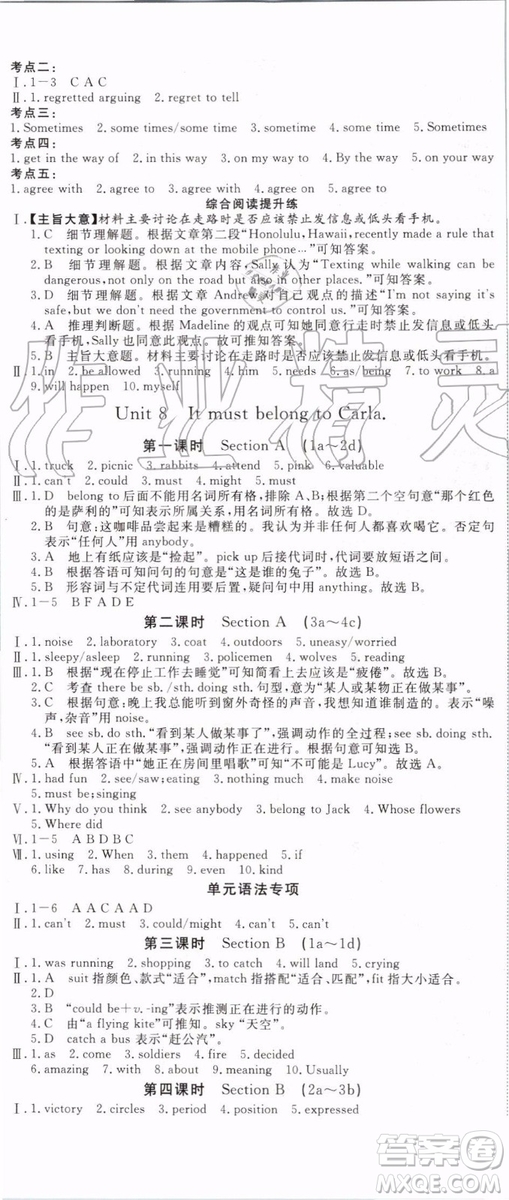 考点二：
Ⅰ. 1－3　CAC
Ⅱ. 1. regretted arguing　2. regret to tell
考点三：
1. Sometimes　2. some times/some time　3. sometimes　4. Sometimes
考点四：
1. get in the way of　2. in this way　3. on my way to　4. By the way　5. on your way
考点五：
1. agree with　2. agree on　3. agree with　4. agree with　5. agree to
综合阅读提升练
Ⅰ.【主旨大意】材料主要讨论在走路时是否应该禁止发信息或低头看手机。
1. C　细节理解题。根据文章第二段“Honolulu, Hawaii, recently made a rule that
texting or looking down at the mobile phone...”可知答案。
2. B　细节理解题。根据文章内容，Sally 认为“Texting while walking can be
dangerous, not only on the road but also in other places.”可知答案。
3. D　细节理解题。根据文章 Andrew 对自己观点的描述“I'm not saying it's
safe, but we don't need the government to control us.”可知答案。
4. A　推理判断题。根据 Madeline 的观点可知她同意行走时禁止发信息或低头
看手机，Sally 也同意此观点。故可知答案。
5. B　主旨大意题。材料主要讨论在走路时是否应该禁止发信息或低头看手机。
Ⅱ. 1. in　2. be allowed　3. running　4. him　5. needs　6. as/when　7. or　8. a
9. will happen　10. myself
Unit 8　It must belong to Carla.
第一课时　Section A　(1a～2d)
Ⅰ. 1. truck　2. picnic　3. rabbits　4. attend　5. pink　6. valuable
Ⅱ. 1. can't　2. must　3. could　4. might　5. must
Ⅲ. 1. D　belong to 后面不能用名词所有格，排除 A、B，根据第二个空句意“那个红色
的是萨利的”可知表示所属关系，应用名词所有格。故选 D。
2. B　句意：这咖啡品尝起来是糟糕的。我认为并非任何人都喜欢喝它。否定句中
表示“任何人”用 anybody。
3. A　地上有纸应该是“捡起”。pick up 后接代词时，代词要放短语中间。故选 A。
4. B　根据答语可知问句的句意是“这是谁的兔子”。故选 B。
5. B　形容词与不定代词连用时应后置，疑问句中用 anything。故选 B。
Ⅳ. 1－5　BFADE
第二课时　Section A　(3a～4c)
Ⅰ. 1. noise　2. laboratory　3. coat　4. outdoors　5. uneasy/worried
Ⅱ. 1. sleepy/asleep　2. running　3. policemen　4. wolves　5. reading
Ⅲ. 1. B　根据“现在停止工作去睡觉”可知简看起来应该是“疲倦”。故选 B。
2. C　考查 there be sb./sth. doing sth. 句型，意为“某人或某物正在做某事”。
3. C　根据句意：晚上我总能听到窗外奇怪的声音，我想知道是谁制造的。表示“噪
声，杂音”用 noise。
4. B　see sb. do sth. “看到某人做了某事”，强调动作的全过程；see sb. doing sth.
“看到某人正在做某事”，强调动作正在进行。故选 B。
5. A　根据答语中“她正在房间里唱歌”可知“不可能是 Lucy”。故选 A。
Ⅳ. 1. had fun　2. see/saw; eating　3. nothing much　4. make noise
5. must be; singing
Ⅴ. 1. Why do you think　2. see anybody　3. belong to Jack　4. Whose flowers
5. Where did
Ⅵ. 1－5　ABDBC
Ⅶ. 1. using　2. When　3. them　4. harmful　5. expressed
6. like　7. has　8. during　9. stories　10. if
单元语法专项
Ⅰ. 1－6　AACAAD
Ⅱ. 1. can't　2. must　3. could/might　4. must　5. can't
第三课时　Section B　(1a～1d)
Ⅰ. 1. was running　2. shopping　3. to catch　4. will land　5. crying
Ⅱ. 1. A　suit 指颜色、款式“适合”，match 指搭配“适合、匹配”，fit 指大小适合。
2. D
3. B　“could be＋v. -ing”表示推测正在进行的动作。
4. C　由“a flying kite”可推知。sky “天空”。
5. D　catch a bus 表示“赶公汽”。
Ⅲ. 1. as　2. come　3. soldiers　4. fire　5. decided
6. amazing　7. with　8. about　9. meaning　10. Usually
第四课时　Section B　(2a～3b)
Ⅰ. 1. victory　2. circles　3. period　4. position　5. expressed
作业精灵
答案圈
MXQE.COM